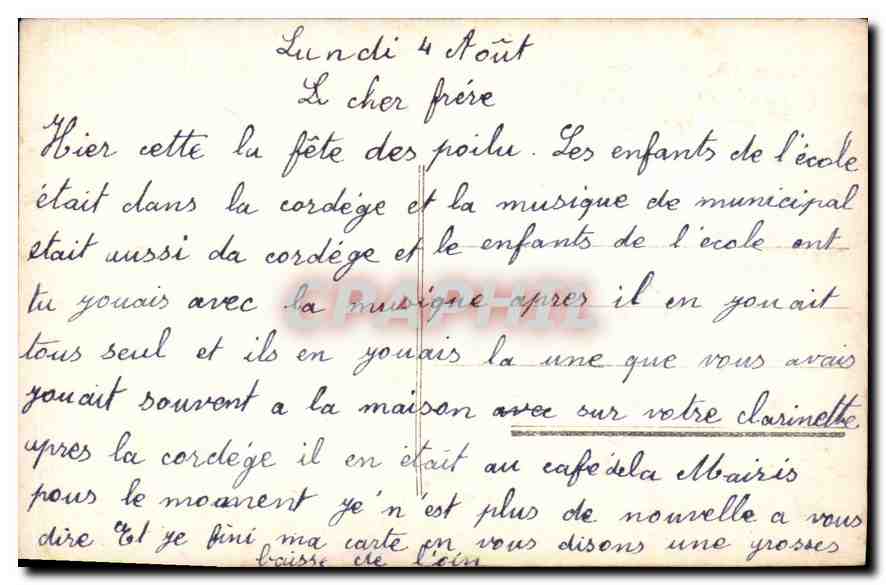 Lundi 4 Août
Le cher frére
Hier cette la fête des poilu. Les enfants de l'école
était dans la cordége et la musique de municipal
etait aussi da cordége et le enfants de l'ecole ont
tu youais avec la musique apres il en youait
tous seul et ils en youais la une que vous avais
youait souvent a la maison avec sur votre clarinette
apres la cordége il en était au café de la Mairis
pous le moanent ye n'est plus de nouvelle a vous
dire Et ye fini ma carte en vous disons une grosses
baisse de l'oin
CPAPHIL